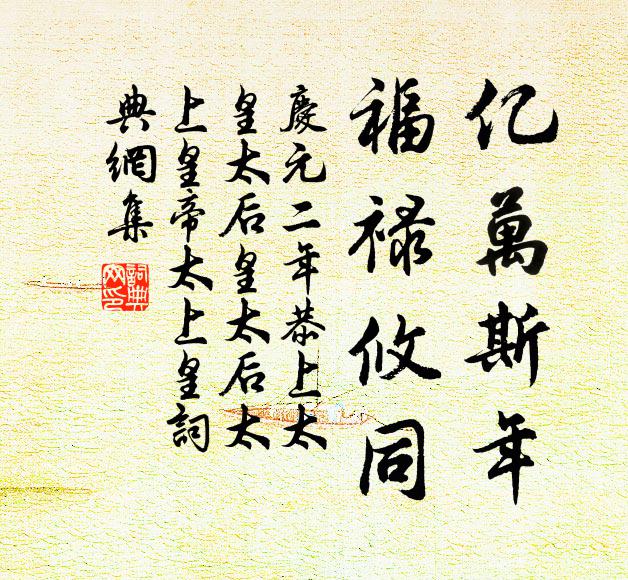 亿萬斯年
福禄攸同
慶元二年恭上太
皇太后皇太后太
上皇帝太上皇詞
典網集
詞典
网印